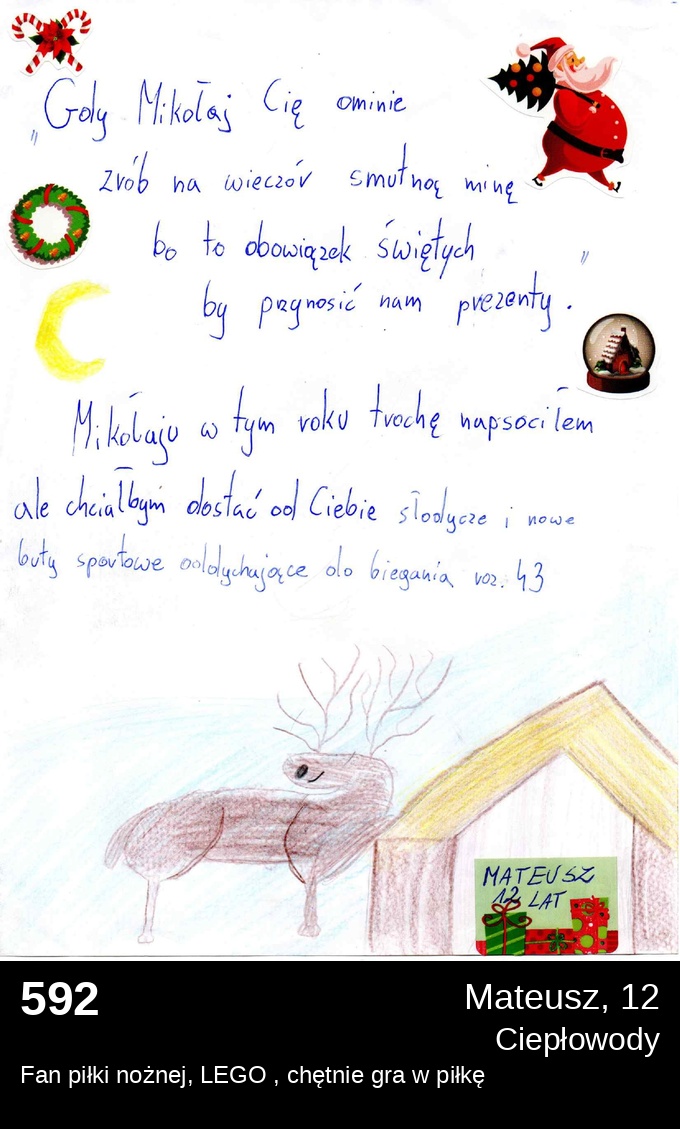 "Gdy Mikołaj Cię ominie
zrób na wieczór smutną minę
bo to obowiązek świętych
by przynosić nam prezenty."
Mikołaju w tym roku trochę napsociłem
ale chciałbym dostać od Ciebie słodycze i nowe
buty sportowe oddychające do biegania roz. 43
MATEUSZ
12 LAT
592
Mateusz, 12
Ciepłowody
Fan piłki nożnej, LEGO , chętnie gra w piłkę